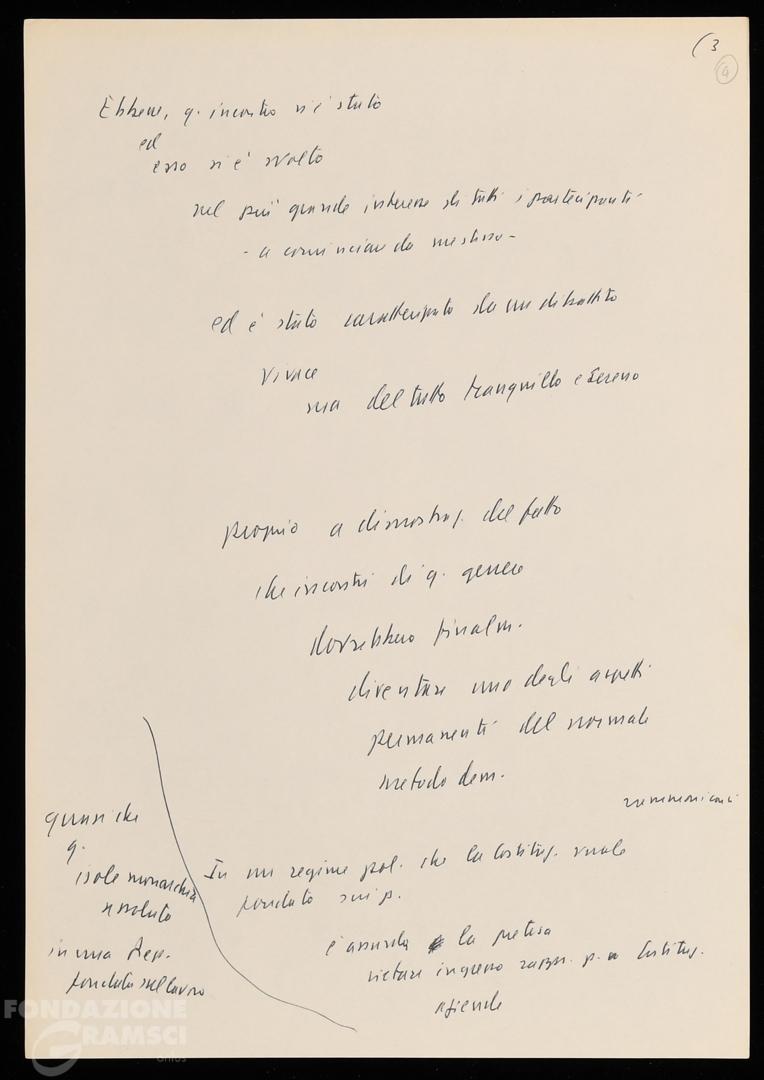 (3
(9)
Ebbene, q. incontro vi è stato
ed
esso si è svolto
nel più grande interesse di tutti i partecipanti
- a cominciare da me stesso -
ed è stato caratterizzato da un dibattito
vivace
ma del tutto tranquillo e sereno
proprio a dimostraz. del fatto
che incontri di q. genere
dovrebbero finalm.
diventare uno degli aspetti
permanenti del normale
metodo dem.
In un regime pol. che la Costituz. vuole
fondato sui p.
è assurda la pretesa
vietare ingresso rappr. p. Costituz.
aziende
quasi che
q.
isole monarchia
assoluta
in una Rep.
fondata sul lavoro
FONDAZIONE
GRAMSCI
onlus